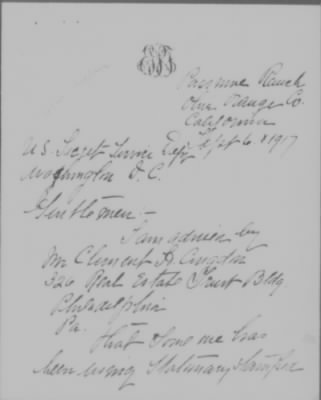 Ranch
Orange Co.
California
Sept 6, 1917
U.S. Secret Service Dept
Washington D.C.
Gentlemen:-
I am advised by
Mr Clement H. Congdon
326 Real Estate Trust Bldg.
Philadelphia
Pa.
that some one has
been using Stationary stamped